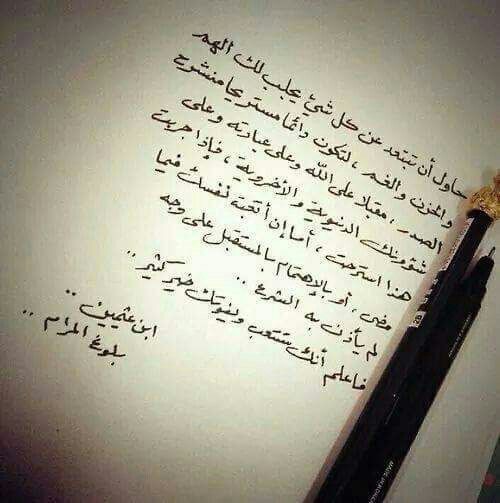 حاول أن تبتعد عن كل شيئ يجلب لك الهم
والحزن والغم ، لتكون دائما مستريحا منشرح
الصدر ، مقبلا على الله وعلى عبادته وعلى
شؤونك الدنيوية والأخروية ، فإذا جربت
هذا استرحت ، أما إن أتعبت نفسك فيما
مضى ، أو بالإهتمام بالمستقبل على وجه
لم يأذن به الشرع ..
فاعلم أنك ستتعب ويفوتك خير كثير ..
ابن عثيمين ..
بلوغ المرام ..